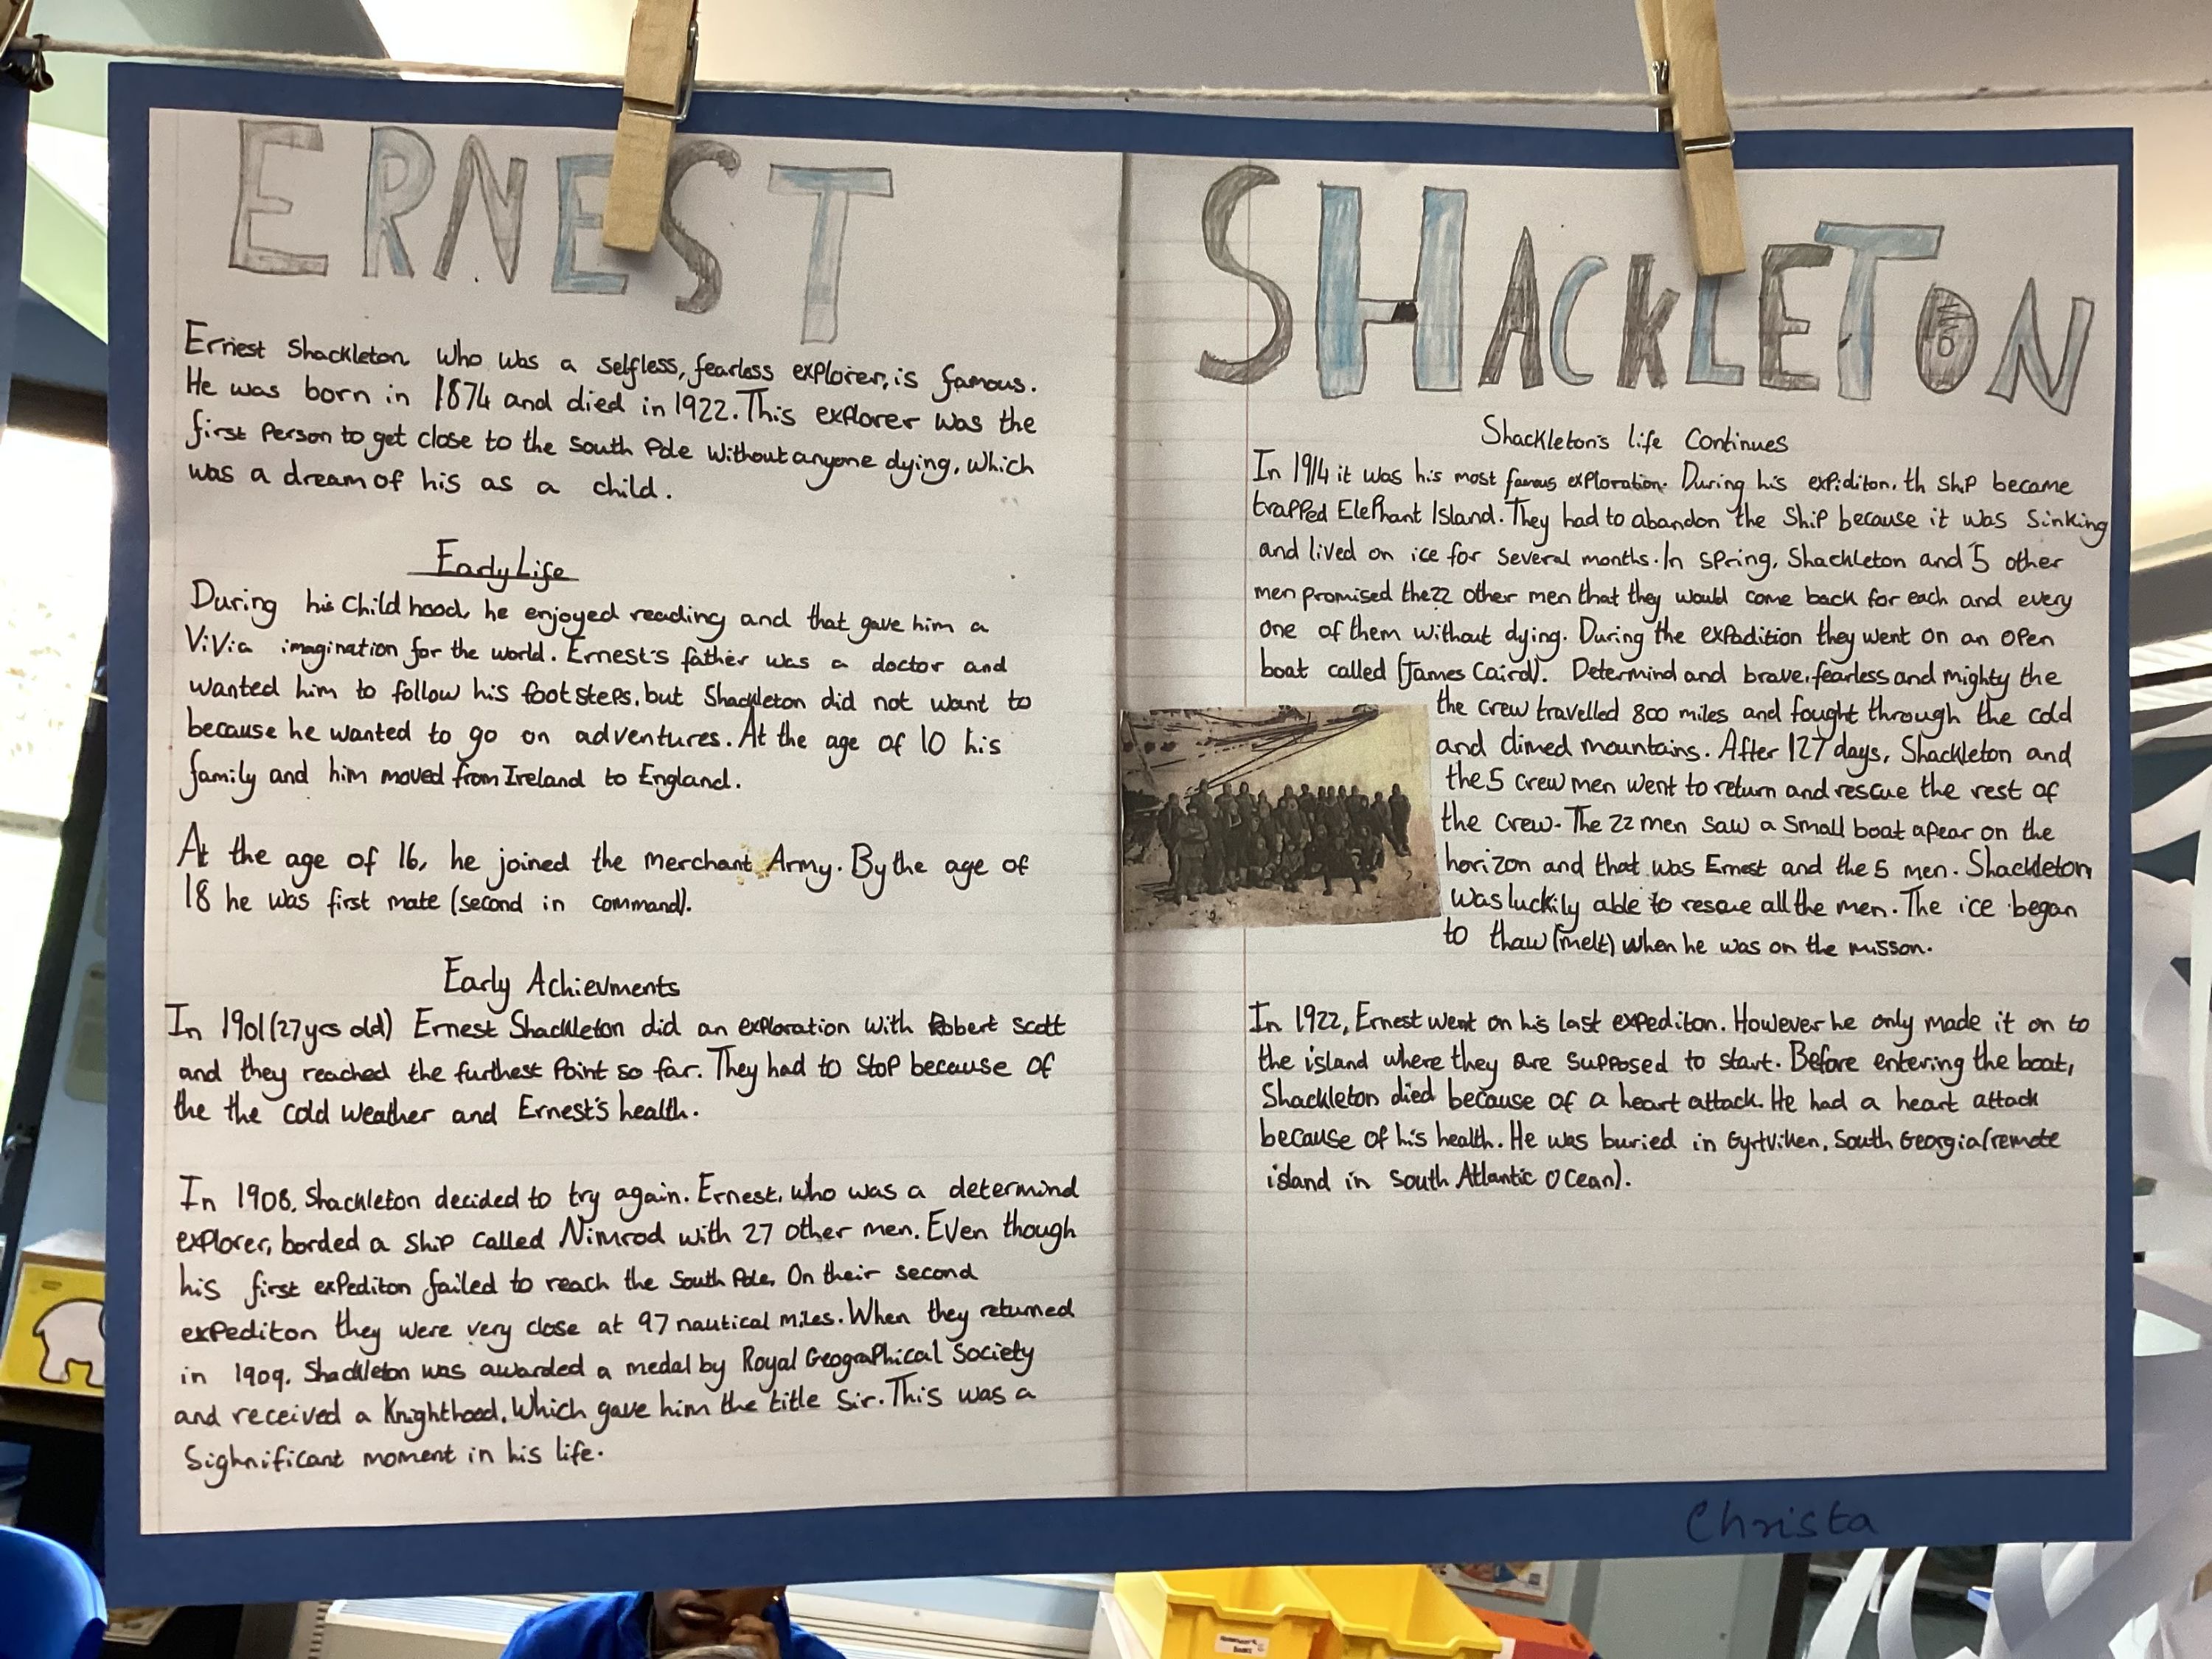 ERNEST
Erniest Shackleton who was a selfless, fearless explorer, is famous.
He was born in 1874 and died in 1922. This explorer was the
first Person to get close to the South Pole without anyone dying, which
was a dream of his as a child.
Early Life
During his Child hood, he enjoyed reading and that gave him a
ViVia imagination for the world. Ernest's father was a doctor and
wanted him to follow his foot steps, but Shackleton did not want to
because he wanted to go on adventures. At the age of 10 his
family and him moved from Ireland to England.
At the age of 16, he joined the merchant Army. By the age of
18 he was first mate (second in command).
Early Achievments
In 1901 (27 yrs old) Ernest Shackleton did an exploration with Robert scott
and they reached the furthest Point so far. They had to stop because of
the the cold weather and Ernest's health.
In 1908, Shackleton decided to try again. Ernest, who was a determind
explorer, borded a ship called Nimrod with 27 other men. Even though
his first expediton failed to reach the South Pole, On their second
expediton they were very close at 97 nautical miles. When they returned
in 1909, Shackleton was awarded a medal by Royal Geographical Society
and received a Knighthood, Which gave him the title Sir. This was a
Sighnificant moment in his life.
SHACKLETON
Shackleton's life Continues
In 1914 it was his most famous exploration. During his expiditon, th ship became
trapped Elephant Island. They had to abandon the ship because it was Sinking
and lived on ice for several months. In spring, Shackleton and 5 other
men promised the 22 other men that they would come back for each and every
one of them without dying. During the expadition they went on an open
boat called (James Caird). Determind and brave, fearless and mighty the
the crew travelled 800 miles and fought through the cold
and climed mountains. After 127 days, Shackleton and
the 5 crew men went to return and rescue the rest of
the crew. The 22 men saw a small boat apear on the
horizon and that was Ernest and the 5 men. Shackleton
was luckily able to rescue all the men. The ice began
to thaw (melt) when he was on the misson.
In 1922, Ernest went on his last expediton. However he only made it on to
the island where they are supposed to start. Before entering the boat,
Shackleton died because of a heart attack. He had a heart attack
because of his health. He was buried in Gyrtviken, South Georgia (remote
island in South Atlantic Ocean).
Christa